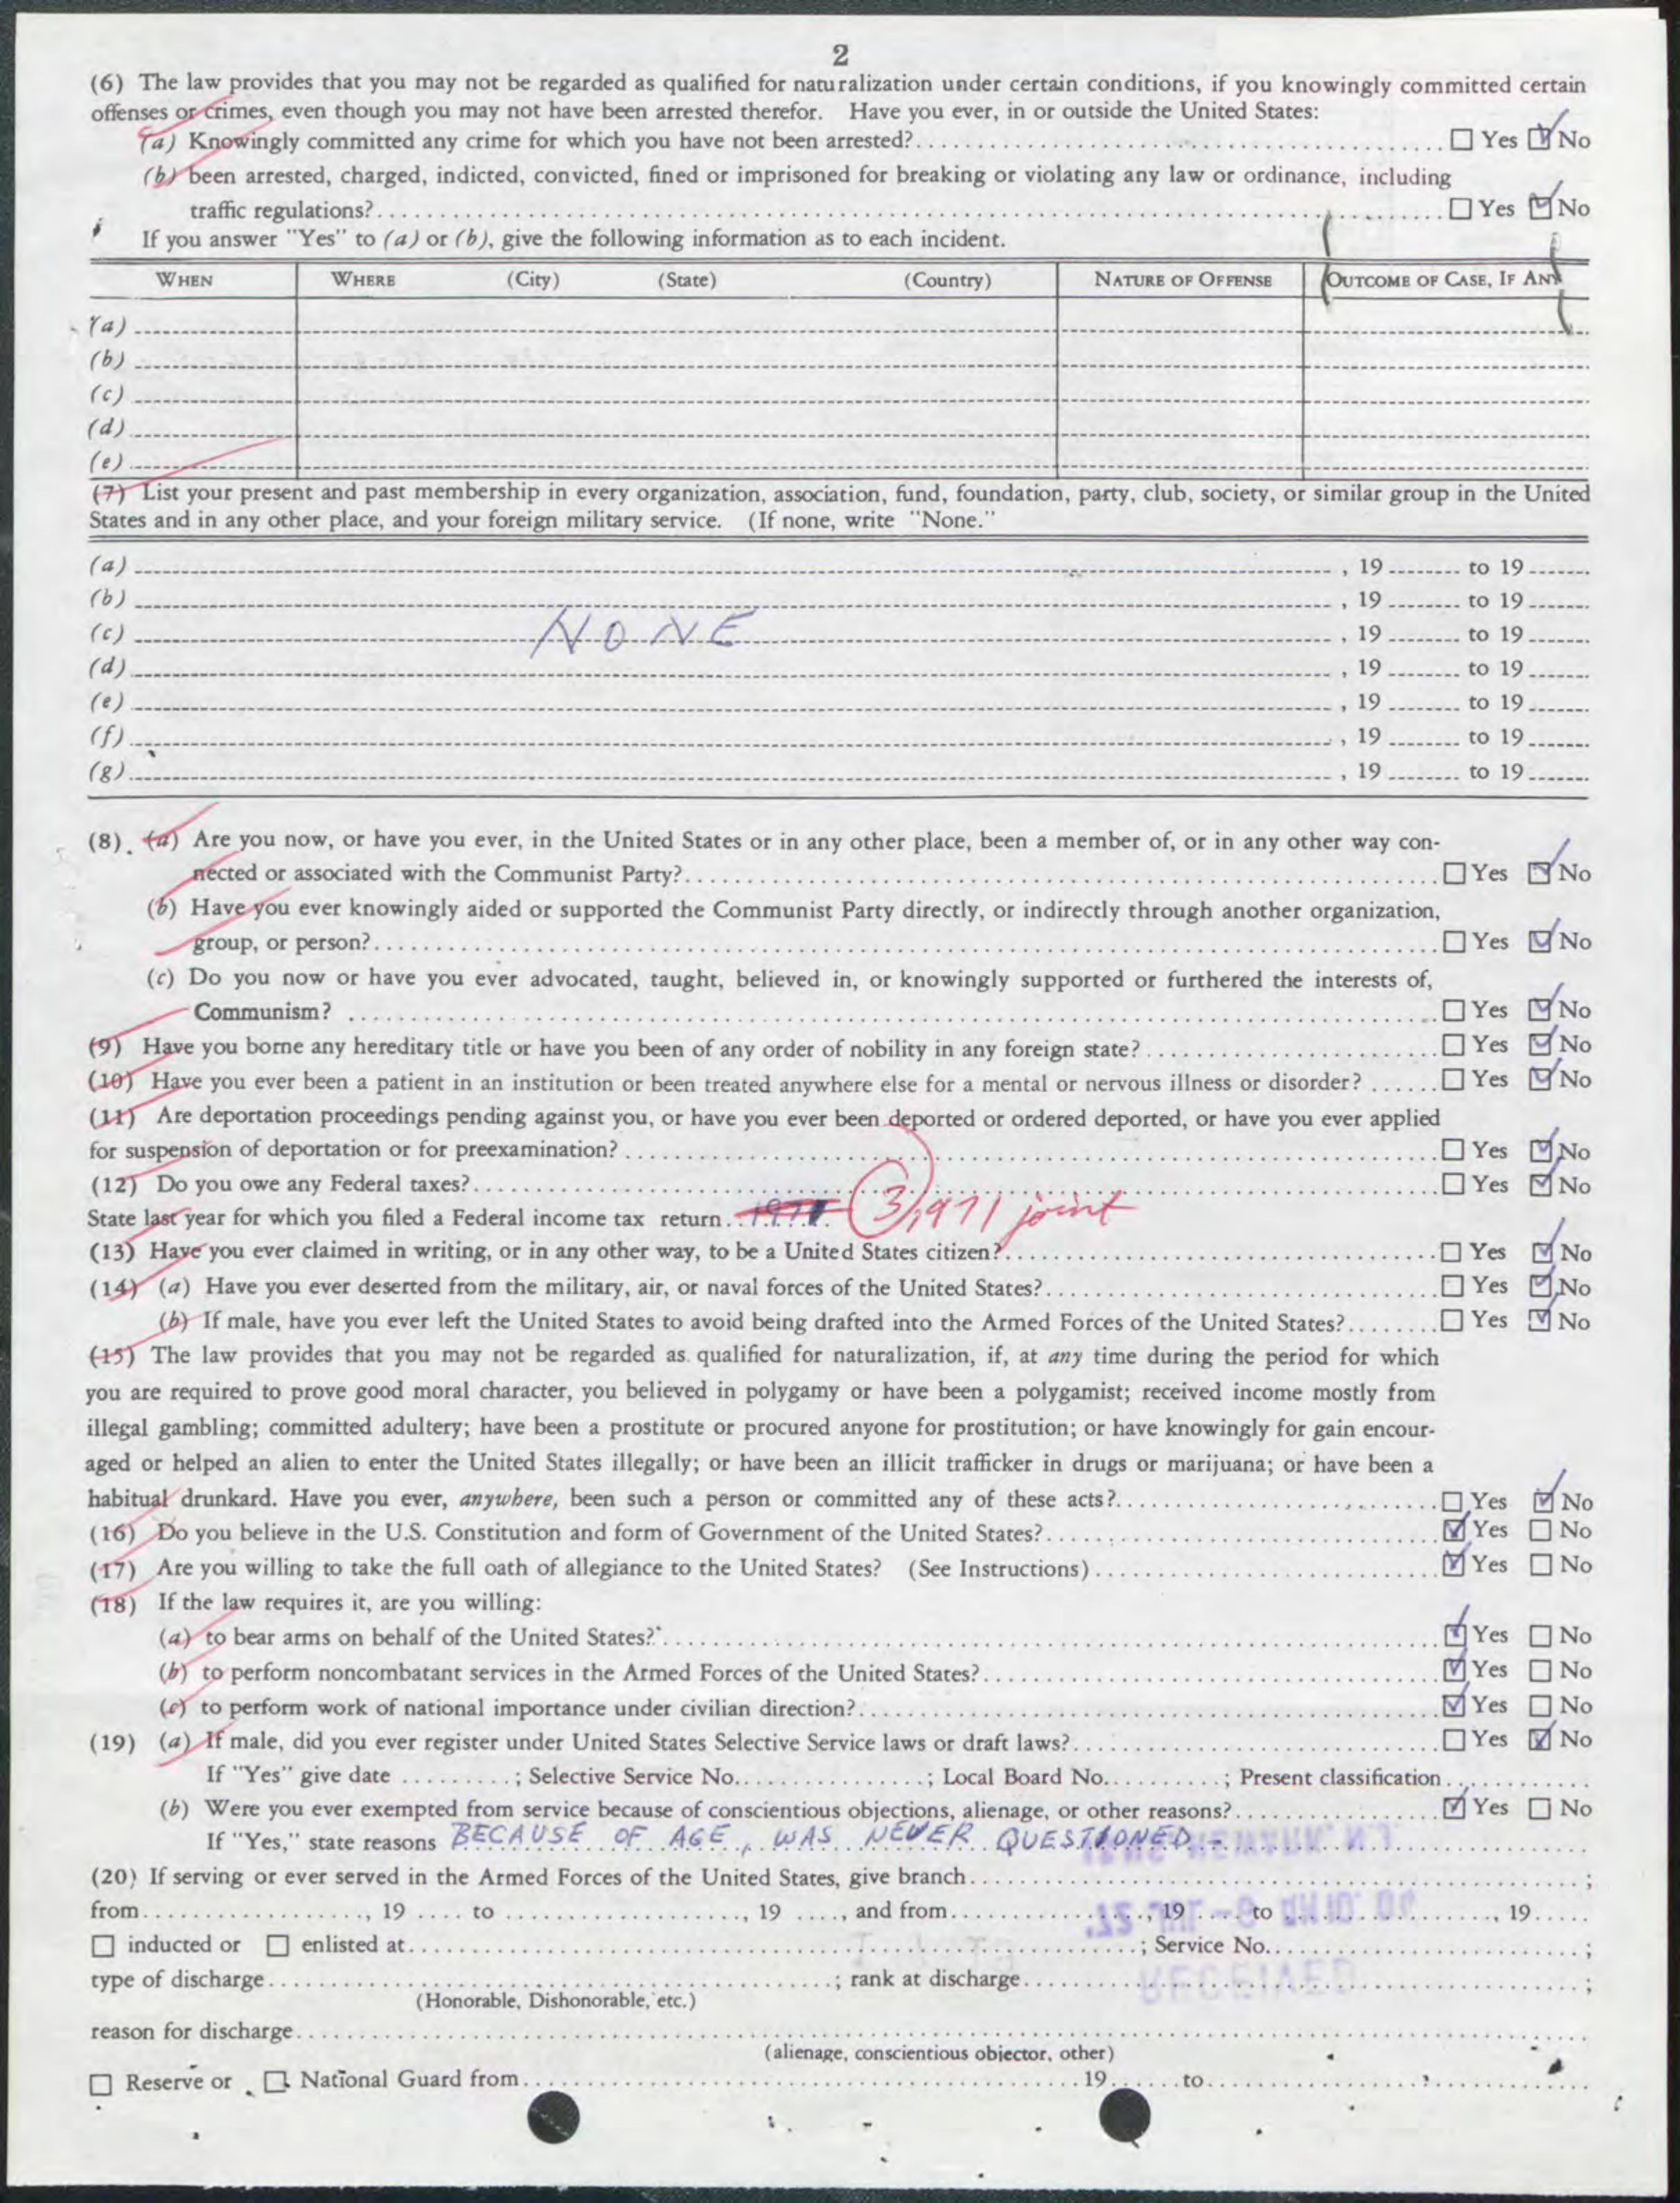 2
(6) The law provides that you may not be regarded as qualified for naturalization under certain conditions, if you knowingly committed certain
offenses or crimes, even though you may not have been arrested therefor. Have you ever, in or outside the United States:
(a) Knowingly committed any crime for which you have not been arrested?.... ☐ Yes ☑ No
(b) been arrested, charged, indicted, convicted, fined or imprisoned for breaking or violating any law or ordinance, including
traffic regulations?.... ☐ Yes ☑ No
If you answer "Yes" to (a) or (b), give the following information as to each incident.
WHEN WHERE (City) (State) (Country) NATURE OF OFFENSE OUTCOME OF CASE, IF ANY
(a)
(b)
(c)
(d)
(e)
(7) List your present and past membership in every organization, association, fund, foundation, party, club, society, or similar group in the United
States and in any other place, and your foreign military service. (If none, write "None."
(a) , 19 to 19
(b) , 19 to 19
(c) NONE , 19 to 19
(d) , 19 to 19
(e) , 19 to 19
(f) , 19 to 19
(g) , 19 to 19
(8). (a) Are you now, or have you ever, in the United States or in any other place, been a member of, or in any other way con-
nected or associated with the Communist Party?.... ☐ Yes ☑ No
(b) Have you ever knowingly aided or supported the Communist Party directly, or indirectly through another organization,
group, or person?.... ☐ Yes ☑ No
(c) Do you now or have you ever advocated, taught, believed in, or knowingly supported or furthered the interests of,
Communism? .... ☐ Yes ☑ No
(9) Have you borne any hereditary title or have you been of any order of nobility in any foreign state?.... ☐ Yes ☑ No
(10) Have you ever been a patient in an institution or been treated anywhere else for a mental or nervous illness or disorder? .... ☐ Yes ☑ No
(11) Are deportation proceedings pending against you, or have you ever been deported or ordered deported, or have you ever applied
for suspension of deportation or for preexamination?.... ☐ Yes ☑ No
(12) Do you owe any Federal taxes?.... ☐ Yes ☑ No
State last year for which you filed a Federal income tax return.. 1971. (3) 1971 joint
(13) Have you ever claimed in writing, or in any other way, to be a United States citizen?.... ☐ Yes ☑ No
(14) (a) Have you ever deserted from the military, air, or naval forces of the United States?.... ☐ Yes ☑ No
(b) If male, have you ever left the United States to avoid being drafted into the Armed Forces of the United States?.... ☐ Yes ☑ No
(15) The law provides that you may not be regarded as qualified for naturalization, if, at any time during the period for which
you are required to prove good moral character, you believed in polygamy or have been a polygamist; received income mostly from
illegal gambling; committed adultery; have been a prostitute or procured anyone for prostitution; or have knowingly for gain encour-
aged or helped an alien to enter the United States illegally; or have been an illicit trafficker in drugs or marijuana; or have been a
habitual drunkard. Have you ever, anywhere, been such a person or committed any of these acts?.... ☐ Yes ☑ No
(16) Do you believe in the U.S. Constitution and form of Government of the United States?.... ☑ Yes ☐ No
(17) Are you willing to take the full oath of allegiance to the United States? (See Instructions).... ☑ Yes ☐ No
(18) If the law requires it, are you willing:
(a) to bear arms on behalf of the United States?.... ☑ Yes ☐ No
(b) to perform noncombatant services in the Armed Forces of the United States?.... ☑ Yes ☐ No
(c) to perform work of national importance under civilian direction?.... ☑ Yes ☐ No
(19) (a) If male, did you ever register under United States Selective Service laws or draft laws?.... ☐ Yes ☑ No
If "Yes" give date ........; Selective Service No..............; Local Board No..........; Present classification..........
(b) Were you ever exempted from service because of conscientious objections, alienage, or other reasons?.... ☑ Yes ☐ No
If "Yes," state reasons BECAUSE OF AGE, WAS NEVER QUESTIONED -
(20) If serving or ever served in the Armed Forces of the United States, give branch....;
from...., 19 .... to ...., 19 ...., and from...., 19 .... to ...., 19....
☐ inducted or ☐ enlisted at....; Service No....;
type of discharge....; rank at discharge....;
(Honorable, Dishonorable, etc.)
reason for discharge....
(alienage, conscientious objector, other)
☐ Reserve or ☐ National Guard from.... 19.... to....